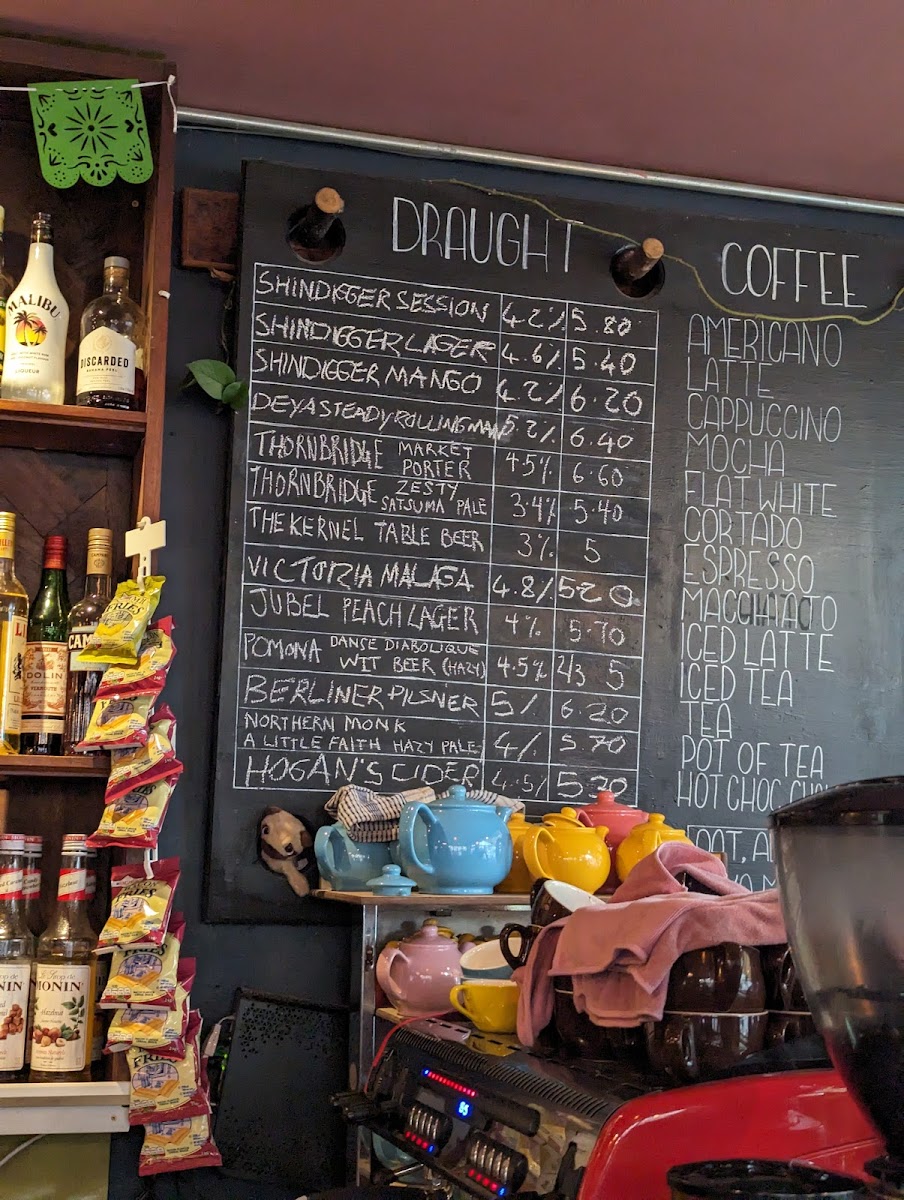 DRAUGHT
SHINDIGGER SESSION 4.2% 5.80
SHINDIGGER LAGER 4.6% 5.40
SHINDIGGER MANGO 4.2% 6.20
DEYA STEADY ROLLING MAN 5.2% 6.40
THORNBRIDGE MARKET PORTER 4.5% 6.60
THORNBRIDGE ZESTY SATSUMA PALE 3.4% 5.40
THE KERNEL TABLE BEER 3% 5
VICTORIA MALAGA 4.8% 5.20
JUBEL PEACH LAGER 4% 5.70
POMONA DANSE DIABOLIQUE
WIT BEER (HAZY) 4.5% 2/3 5
BERLINER PILSNER 5% 6.20
NORTHERN MONK
A LITTLE FAITH HAZY PALE 4% 5.70
HOGAN'S CIDER 4.5% 5.20
COFFEE
AMERICANO
LATTE
CAPPUCCINO
MOCHA
FLAT WHITE
CORTADO
ESPRESSO
MACCHIATO
ICED LATTE
ICED TEA
TEA
POT OF TEA
HOT CHOC
OAT,
MALIBU
LIQUEUR
DISCARDED
BANANA PEEL
DOLIN
VERMOUTH
CAM
FRIES
FRIES
MONIN
Le Sirop de
MONIN
Hazelnut
85